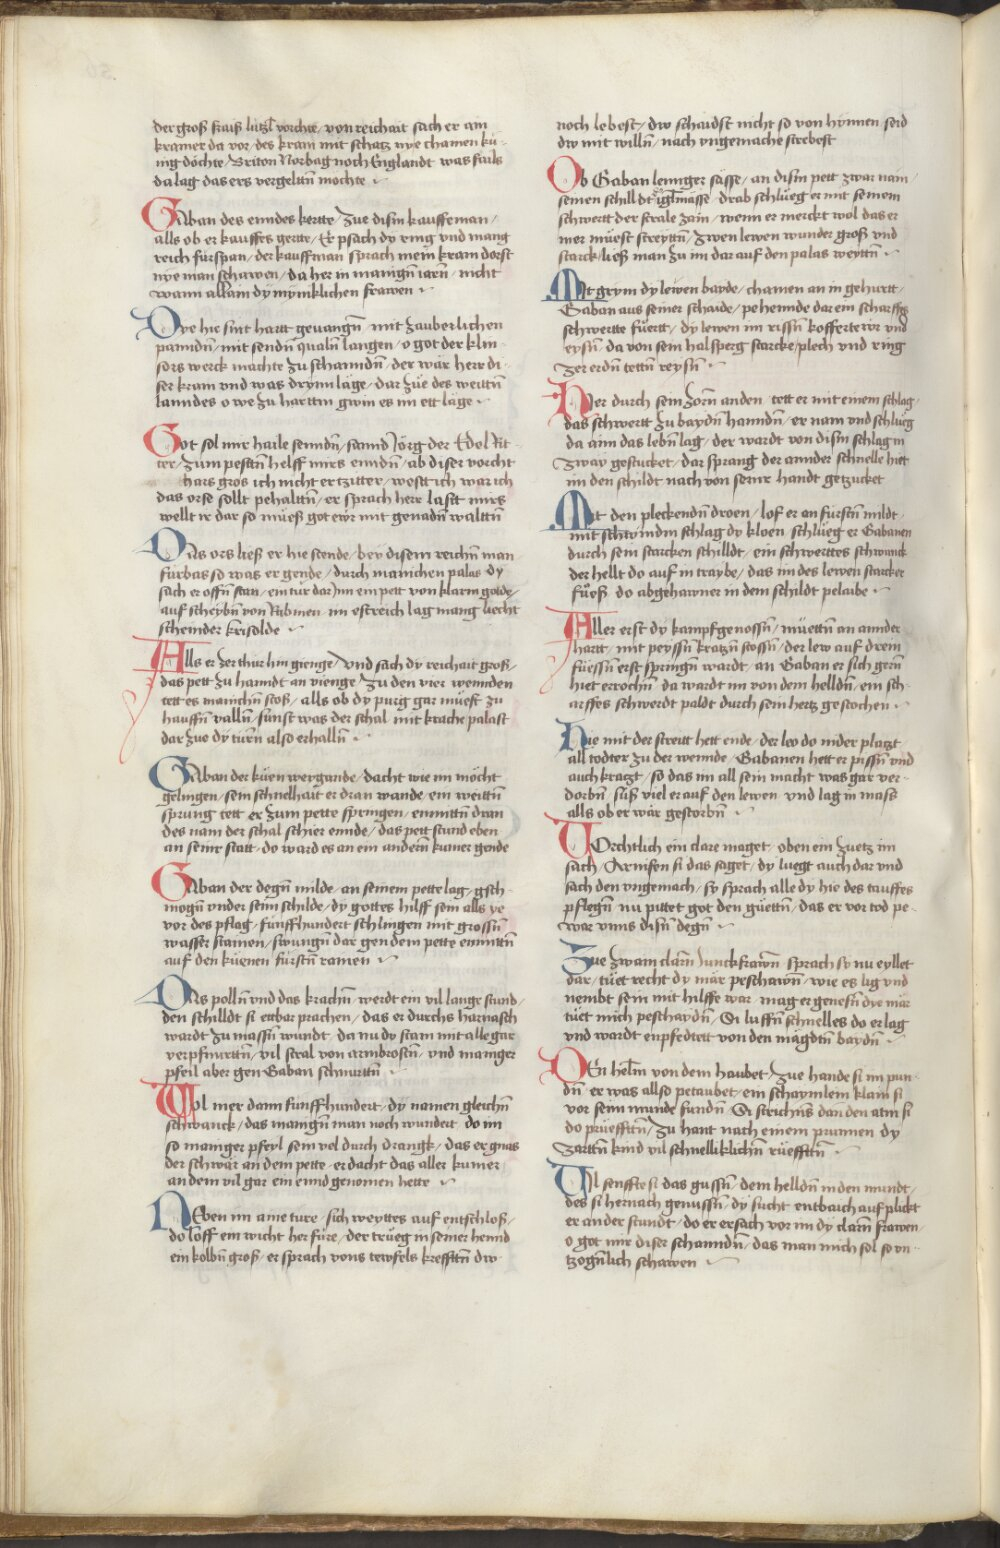 der groß straiß lützl vorchte / von reichait sach er ain
kramer da vor / des kram mit schatz nye chainen kü-
nig döchte / Briton Norbag noch Englandt was fails
da lag das ers vergeltn mochte
Gaban des enndes kertte / Zue disem kauffeman /
alls ob er kauffes gertte / Er psach dy ring vnd mang
reich fürspan / der kauffman sprach mein kram dorst
nye man schawen / da her in manign iarn / nicht
wann allain dy mynniklichen frawen
Dye hie sint hartt geuangn / mit zauberlichen
panndn / mit sendn qualn langen / o got der klin-
sors werck machte zu schanndn / der wär herr di-
ser kram vnd was drynn läge / dar zue des weittn
lanndes o we zu harttm gwin es im ett läge
Got sol mir haile senndn / sannd Jörg der Edel Rit-
ter / zum pestn helff mirs enndn / ab diser vorcht
hars gros ich nicht ertzitter / west ich war ich
das orse sollt pehalttn / er sprach herr lastt mirs
wellt ir dar so müeß got ewr mit genadn walttn
Das ors ließ er hie stende / bey disem reichn man
fürbas so was er gende / durch mainchen palas dy
sach er offn stan / ein tür dar Inn ein pett von klarm golde /
auf scheybn von Rubinen im estreich lag mang liecht
scheinder krisolde
Alls er zer thür hin gienge / vnd sach dy reichait groß /
das pett zu hanndt an vienge / Zu den vier wennden
tett es mainchn stoß / alls ob dy purg gar müest zu
hauffn valln / sunst was der schal mit krache palast
dar zue dy türn also erhalln
Gaban der küen weygande / dacht wie im möcht
gelingen / sein schnelhait er dran wande / ein weittn
sprung tett er zum pette springen / enmittn dran
des nam der schal schier ennde / das pett stund eben
an seinr statt / do ward es an ein andern kainer gende
Gaban der degn milde / an seinem pette lag / gsch-
mogn vnder seim schilde / dy gottes hilff sein alls ye
vor des pflag / fünffhundert schlingen mit grossn
wasser stainen / swungn dar gen dem pette enmittn
auf den küenen fürstn rainen
Das polln vnd das krachn werdt ein vil lange stund /
den schilldt si ettbar prachen / das er durchs harnasch
wardt zu massn wundt / da nu dy stain mit alle gar
verpfinrttn / vil stral von armbrostn / vnd mainger
pfeil aber gen Gaban schnurttn
Wol mer dann fünffhundert / dy namen gleichn
schwanck / das manign man noch wundert do im
so mainger pfeyl sein vel durch drangk / das er gnas
der schwär an dem pette / er dacht das aller kumer /
an dem vil gar ein ennd genomen hette
Neben im ain e türe / sich weyttes auf entschloß /
do loff ein wicht her füre / der trueg in seiner hennd
ein kolbn groß / er sprach vons tewfels krefftn dw
noch lebest / dw schaidst nicht so von hynnen seid
dw mit willn / nach vngemache strebest
Ob Gaban lenniger sässe / an disem pett zwar nain /
seinen schilldt drab schlueg er mit seinem
schwertt der strale zain / wenn er merckt wol das er
mer müest streyttn / zwen lewen wunder groß vnd
starck / ließ man zu im dar auf den palas weyttn
Mit grym dy lewen bayde / chamen an in gehurtt /
Gaban aus seiner schaide / pehennde dar ein scharffes
schwertte füertt / dy lewen im rissn kofferteür vnd
eysn / da von sein halsperg starcke / plech vnd ring
zer erdn tettn reysn
Der durch sein zorn anden tett er mit einem schlag /
das schwertt zu baydn hanndn / er nam vnd schlueg
da ainn das lebn lag / der wardt von disem schlag in
zway gestucket / dar sprang der annder schnelle hiet
im den schildt nach von seinr handt getzucket
Mit den pleckendn droen / lof er an fürstn milldt
mit schwindm schlag dy kloen schlueg er Gabanen
durch sein starcken schilldt / ein schwerttes schwannck
der hellt do auf in traybe / das im des lewen starcker
fueß / do abgehawner in dem schildt pelaibe
Aller erst dy kampfgenossn / müettn an annder
hartt / mit peyssn kratzn stossn / der lew auf drein
füessn erst springn wardt / an Gaban er sich gern
hiet errochn / da wardt im von dem helldn / ein sch-
arffes schwerdt paldt durch sein hertz gestochen
Hie mit der streitt hett ende / der leo do nider platzt
all todter zu der wennde / Gabanen hett er pissn vnd
auch kratzt / so das im all sein macht was gar ver-
dorbn / süß viel er auf den lewen vnd lag in mass
alls ob er wär gestorbn
Vorchtlich ein clare maget / oben ein zuetz im
sach / Arnisen si das saget / dy luegt auch dar vnd
sach den vngemach / sy sprach alle dy hie des tauffes
pflegn nu pittet got den güettn / das er vor tod pe-
war vnns disen degn
Zue zwain clarn Junckfrawn sprach sy nu eyllet
dar / tüet recht dy mär peschawn / wie es lig vnd
nembt sein mit hilffe war / mag er genesn dye mär
tüet mich peschaydn / Si luffn schnelles do er lag
vnd wardt enpfedtett von den mägdtn baydn
Den helm von dem haubet / zue hande si im pun-
dn / er was allso petaubet / ein schaymlein klain si
vor seim munde fundn / Si strichns dan den atm si
do prüefftn / zu hant nach einem prunnen dy
zarttn kind vil schnelliklichn rüefftn
Vil senffte si das gussn / dem helldn in den mundt /
des si hernach genussn / dy sucht entbaich auf plickt
er ander stundt / do er ersach vor im dy clarn frawen /
o got mir diser schanndn / das man mich sol so vn-
tzognlich schawen